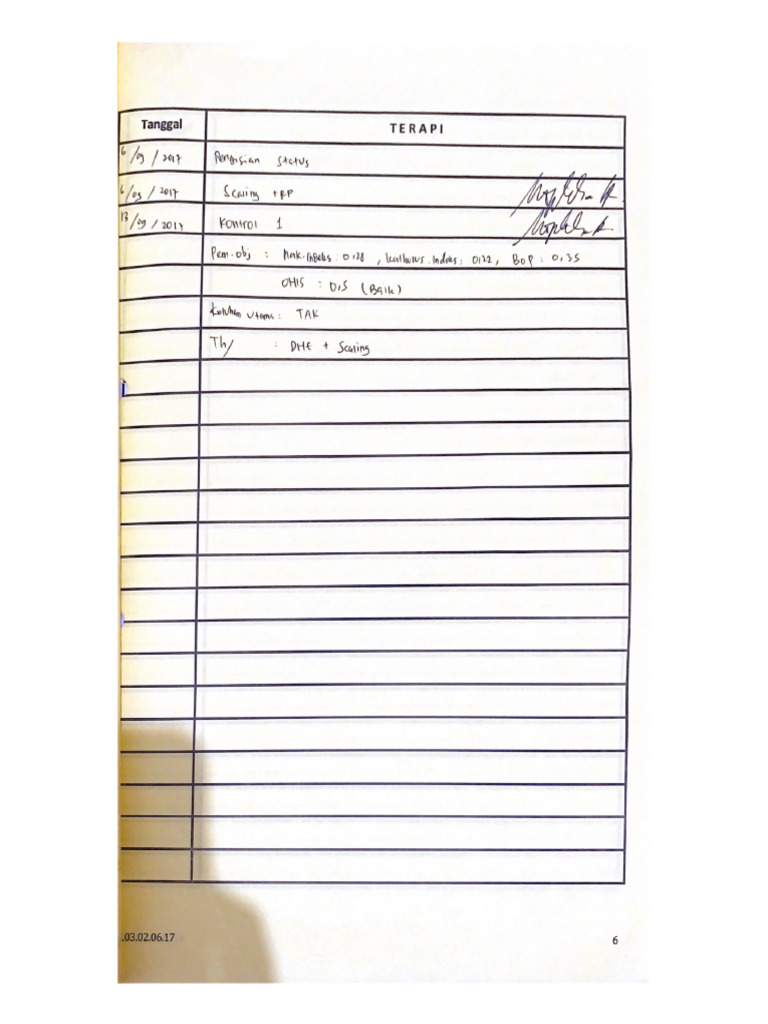 Tanggal TERAPI
6/09/2017 Pengisian Status
6/09/2017 Scaling + RP
13/09/2017 Kontrol 1
Pem. obj : Plak. Indeks : 0,28 , kalkulus. Indeks : 0,22 , BOP : 0,35
OHIS : 0,5 (Baik)
Keluhan Utama : TAK
Th/ : DHE + Scaling
.03.02.06.17
6